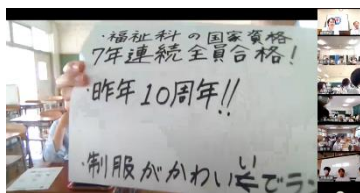 ・福祉科の国家資格
7年連続全員合格!
・昨年10周年!!
・制服がかわいい